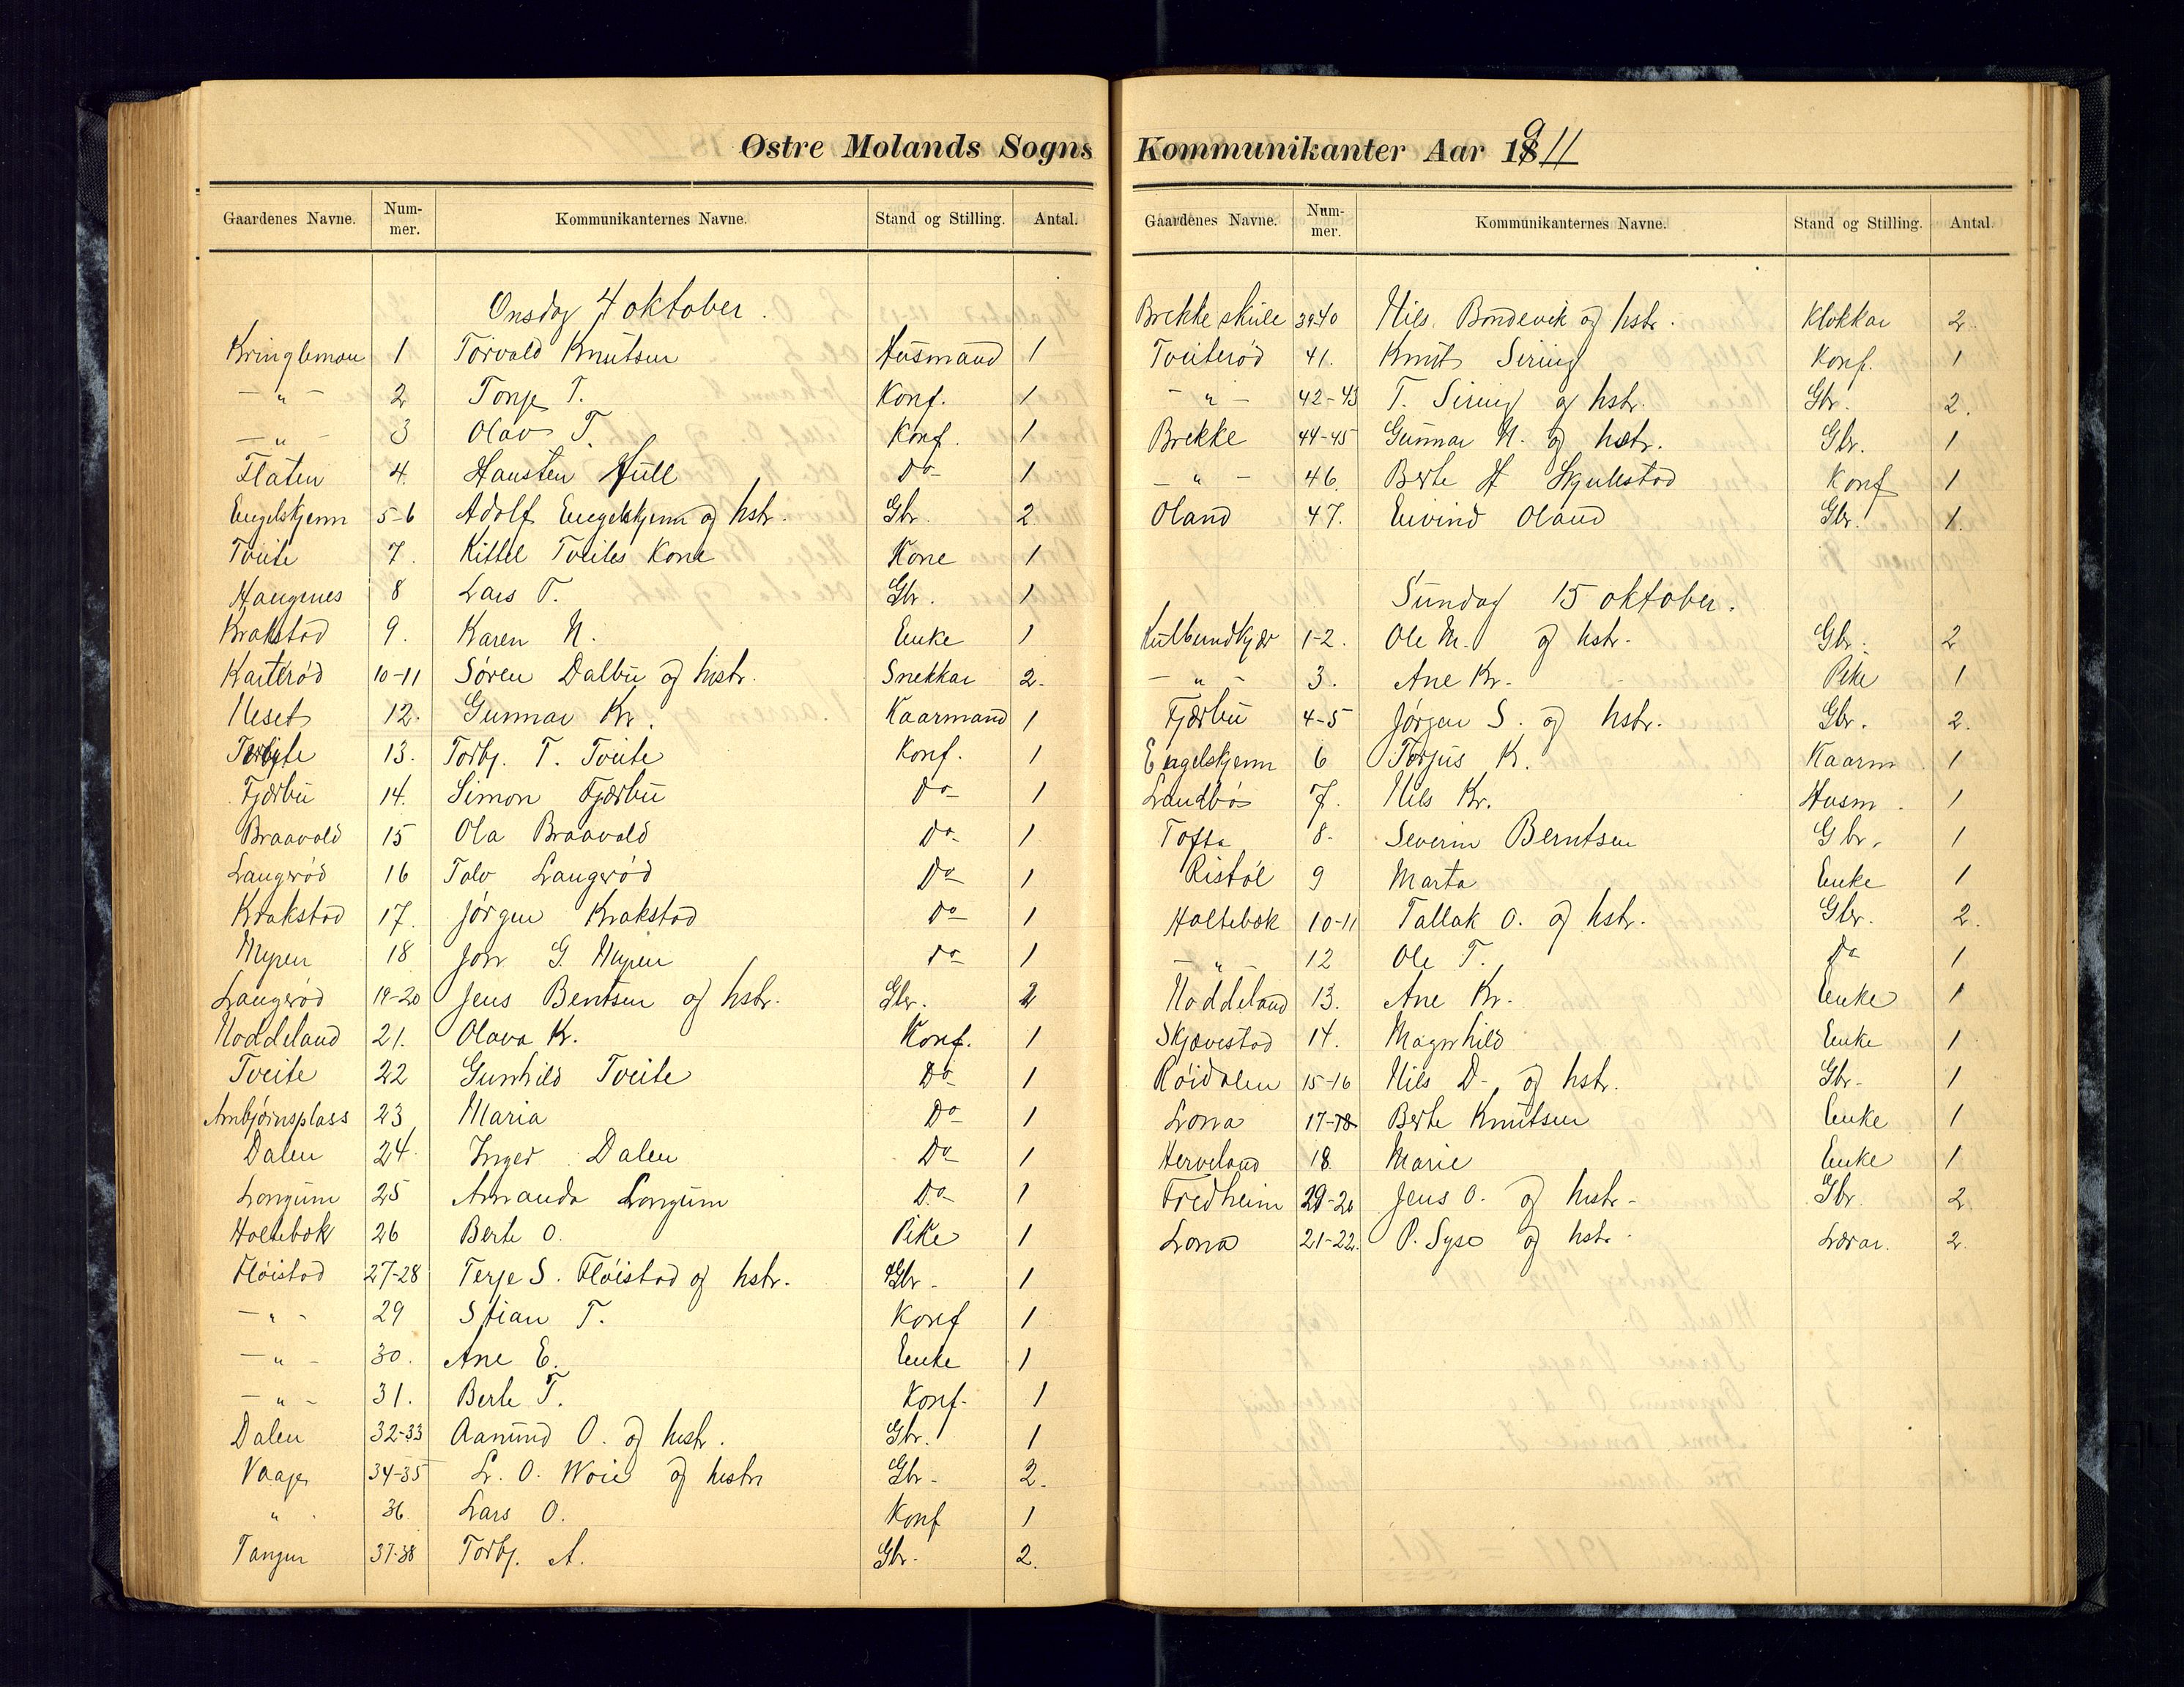 Østre Molands Sogns
Gaardenes Navne. Num-mer. Kommunikanternes Navne. Stand og Stilling. Antal.
Onsdag 4 oktober.
Kringlemoen 1 Torvald Knutsen Husmand 1
— " — 2 Tonje T. Konf. 1
— " — 3 Olav T. Konf. 1
Flaten 4. Do 1
Engelskjenn 5-6 Adolf Engelskjenn og hstr. Gbr. 2
Tveite 7. Kittel Tveites Kone Kone 1
Haugenes 8 Lars T. Gbr. 1
Krakstad 9. Karen N. Enke 1
10-11 Søren Dalbu og hustr. Snekkar 2.
Neset 12. Gunnar Kr. Kaarmand 1
Tveite 13. Torbj. T. Tveite Konf. 1
Fjærbu 14. Simon Fjærbu Do 1
Braavold 15 Ola Braavold Do 1
Langerød 16 Tolv Langerød Do 1
Krakstad 17. Jørgen Krakstad Do 1
Myren 18 Jon G. Myren Do 1
Langerød 19-20 Jens Bentsen og hstr. Gbr. 2
Noddeland 21. Olava K. Konf. 1
Tveite 22 Gunhild Tveite Do 1
Ambjørnsplass 23 Maria Do 1
Dalen 24 Inger Dalen Do 1
Longum 25 Amanda Longum Do 1
Holtebæk 26 Berte O. Pike 1
Fløistad 27-28 Terje S. Fløistad og hstr. Gbr. 1
— " — 29 Stian T. Konf 1
— " — 30. Ane E. Enke 1
— " — 31. Berte T. Konf. 1
Dalen 32-33 Aamund O. og hustr. Gbr. 1
Vaage 34-35 L. O. og hustr Gbr. 2.
" 36 Lars O. Konf 1
Tangen 37-38 Torbj. A. Gbr. 2.
Kommunikanter Aar 1911
Gaardenes Navne. Num-mer. Kommunikanternes Navne. Stand og Stilling. Antal.
Brekke skule 39-40 Nils Bondevik og hstr. Klokkar 2.
Tveiterød 41. Knut Siring Konf. 1
— " — 42-43 T. Siring og hstr. Gbr. 2.
Brekke 44-45 Gunnar N. og hstr. Gbr. 1
— " — 46. Berte H Skjulestad Konf 1
Oland 47. Eivind Oland Gbr. 1.
Sundag 15 oktober.
1-2. Ole M. og hstr. Gbr. 2
— " — 3. Ane Kr. Pike 1
Fjærbu 4-5 Jørgen S. og hstr. Gbr. 2.
Engelskjenn 6 Torjus K. Kaarm. 1
Landbø 7. Nils Kr. Husm. 1
Tofta 8. Severin Berntsen Gbr. 1
Ristøl 9 Marta Enke 1
Holtebæk 10-11 Tallak O. og hstr. Gbr. 2.
— " — 12 Ole T. Do 1
Noddeland 13. Ane Kr. Enke 1
Skjævestad 14. Magnhild Enke 1
Røidalen 15-16 Nils D. og hstr. Gbr. 1
Lona 17-18 Berte Knutsen Enke 1
Herveland 18. Marie Enke 1
Fredheim 20 Jens O. og hustr. Gbr. 2
Lona 21-22. P. Syse og hstr. Lærar. 2.